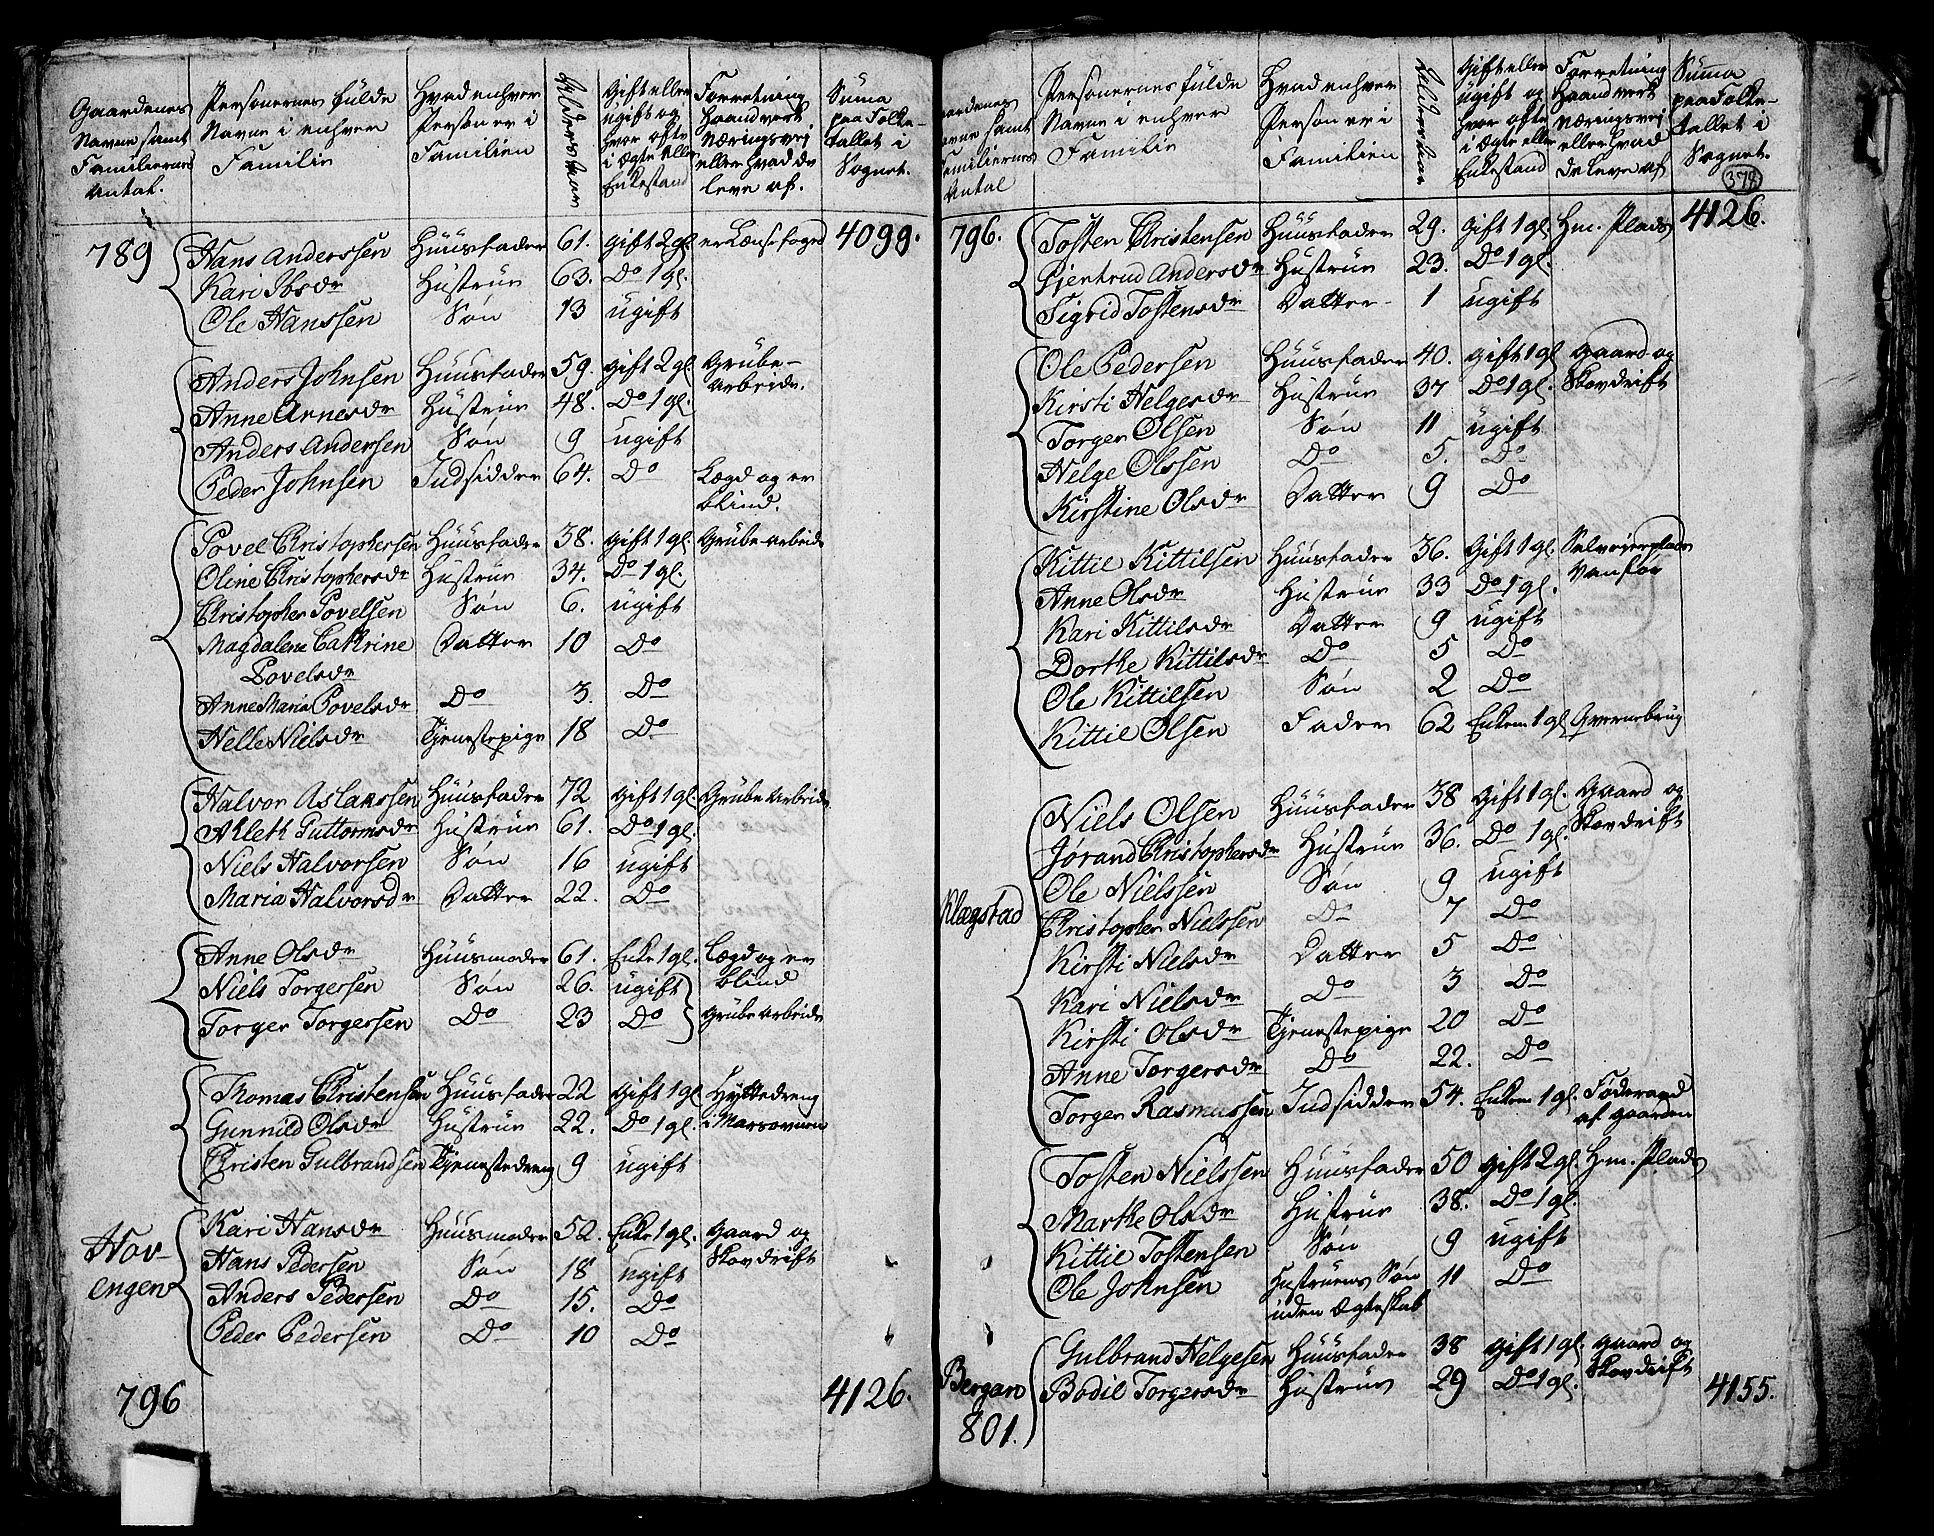 Gaardenes Navne samt Familiernes Antal. | Personernes fulde Navne i enhver Familie | Hvad enhver Person er i Familien | Alders Aar | Gift eller ugift og hvor ofte i Ægte eller Enkestand | Forretning Haandverk Næringsvej eller hvad de leve af. | Suma paa Folke-tallet i Sognet.
789 Hans Anderssen Huusfader 61. gift 2 gl. er Lænsfoged 4099.
Kari Ibsdr Hustrue 63. Do 1 gl.
Ole Hanssen Søn 13 ugift
Anders Johnsen Huusfader 59. gift 2 gl. Grube-
arbeide.
Anne Arnesdr Hustrue 48. Do 1 gl.
Anders Andersen Søn 9 ugift
Peder Johnsen Indsidder 64. Do Lægd og er
blind.
Povel Christophersen Huusfader 38. gift 1 gl. Grube arbeide
Oline Christophersdr Hustrue 34. Do 1 gl.
Christopher Povelsen Søn 6. ugift
Magdalene Cathrine Datter 10 Do
Povelsdr
Anne Maria Povelsdr Do 3. Do
Helle Nielsdr Tjenestepige 18 Do
Halvor Aslakssen Huusfader 72 gift 1 gl. Grube Arbeide
Ahleth Guttormsdr Hustrue 61. Do 1 gl.
Niels Halvorsen Søn 16 ugift
Maria Halvorsdr Datter 22. Do
Anne Olsdr Huusmoder 61. Enke 1 gl. Lægd og er
blind
Niels Torgersen Søn 26. ugift
Torger Torgersen Do 23 Do Grube Arbeide
Thomas Christensen Huusfader 22 gift 1 gl Hyttedreng
Gunnild Olsdr Hustrue 22. Do 1 gl. i Marsovnen
Christen Gulbrandsen Tjenestedreng 9 ugift
Hov-
engen
Kari Hansdr Huusmoder 52. Enke 1 gl. Gaard og
Skovdrift
Hans Pedersen Søn 18 ugift
Anders Pedersen Do 15. Do
Peder Pedersen Do 10 Do
796 4126.
Gaardenes Navne samt Familiernes Antal | Personernes fulde Navne i enhver Familie | Hvad enhver Person er i Familien | Alders Aar | Gift eller ugift og hvor ofte i Ægte eller Enkestand | Forretning Haandverk Næringsvej eller hvad de leve af | Suma paa Folke-tallet i Sognet.
378
796. Tosten Christensen Huusfader 29. Gift 1 gl. Hm. Plads 4126.
Gjertrud Andersdr Hustrue 23. Do 1 gl.
Sigrid Tostensdr Datter 1 ugift
Ole Pedersen Huusfader 40. gift 1 gl Gaard og
Kirsti Helgesdr Hustrue 37 Do 1 gl. Skovdrift
Torger Olsen Søn 11 ugift
Helge Olssen Do 5. Do
Kirstine Olsdr Datter 9 Do
Kittil Kittilsen Huusfader 36. Gift 1 gl. Selveierplads
Vanfør
Anne Olsdr Hustrue 33 Do 1 gl.
Kari Kittilsdr Datter 9 ugift
Dorthe Kittilsdr Do 5 Do
Ole Kittilsen Søn 2 Do
Kittil Olsen Fader 62 Enkem 1 gl Qvernebrug
Niels Olsen Huusfader 38 Gift 1 gl. Gaard og
Jørand Christophersdr Hustrue 36. Do 1 gl. Skovdrift
Klægstad
Ole Nielssen Søn 9 ugift
Christopher Nielssen Do 7 Do
Kirsti Nielsdr Datter 5 Do
Kari Nielsdr Do 3 Do
Kirsti Olsdr Tjenestepige 20 Do
Anne Torgersdr Do 22. Do
Torger Rasmussen Indsidder 54. Enkem 1 gl. Føderaad
af gaarden
Tosten Nielssen Huusfader 50 gift 2 gl. Hm. Plads
Marthe Olsdr Hustrue 38. Do 1 gl.
Kittil Tostensen Søn 9 ugift
Ole Johnsen Hustruens Søn 11 Do
uden Ægteskab
Gulbrand Helgesen Huusfader 38 gift 1 gl. gaard og
Skovdrift
Bergan Bodil Torgersdr Hustrue 29 Do 1 gl. 4155.
801.